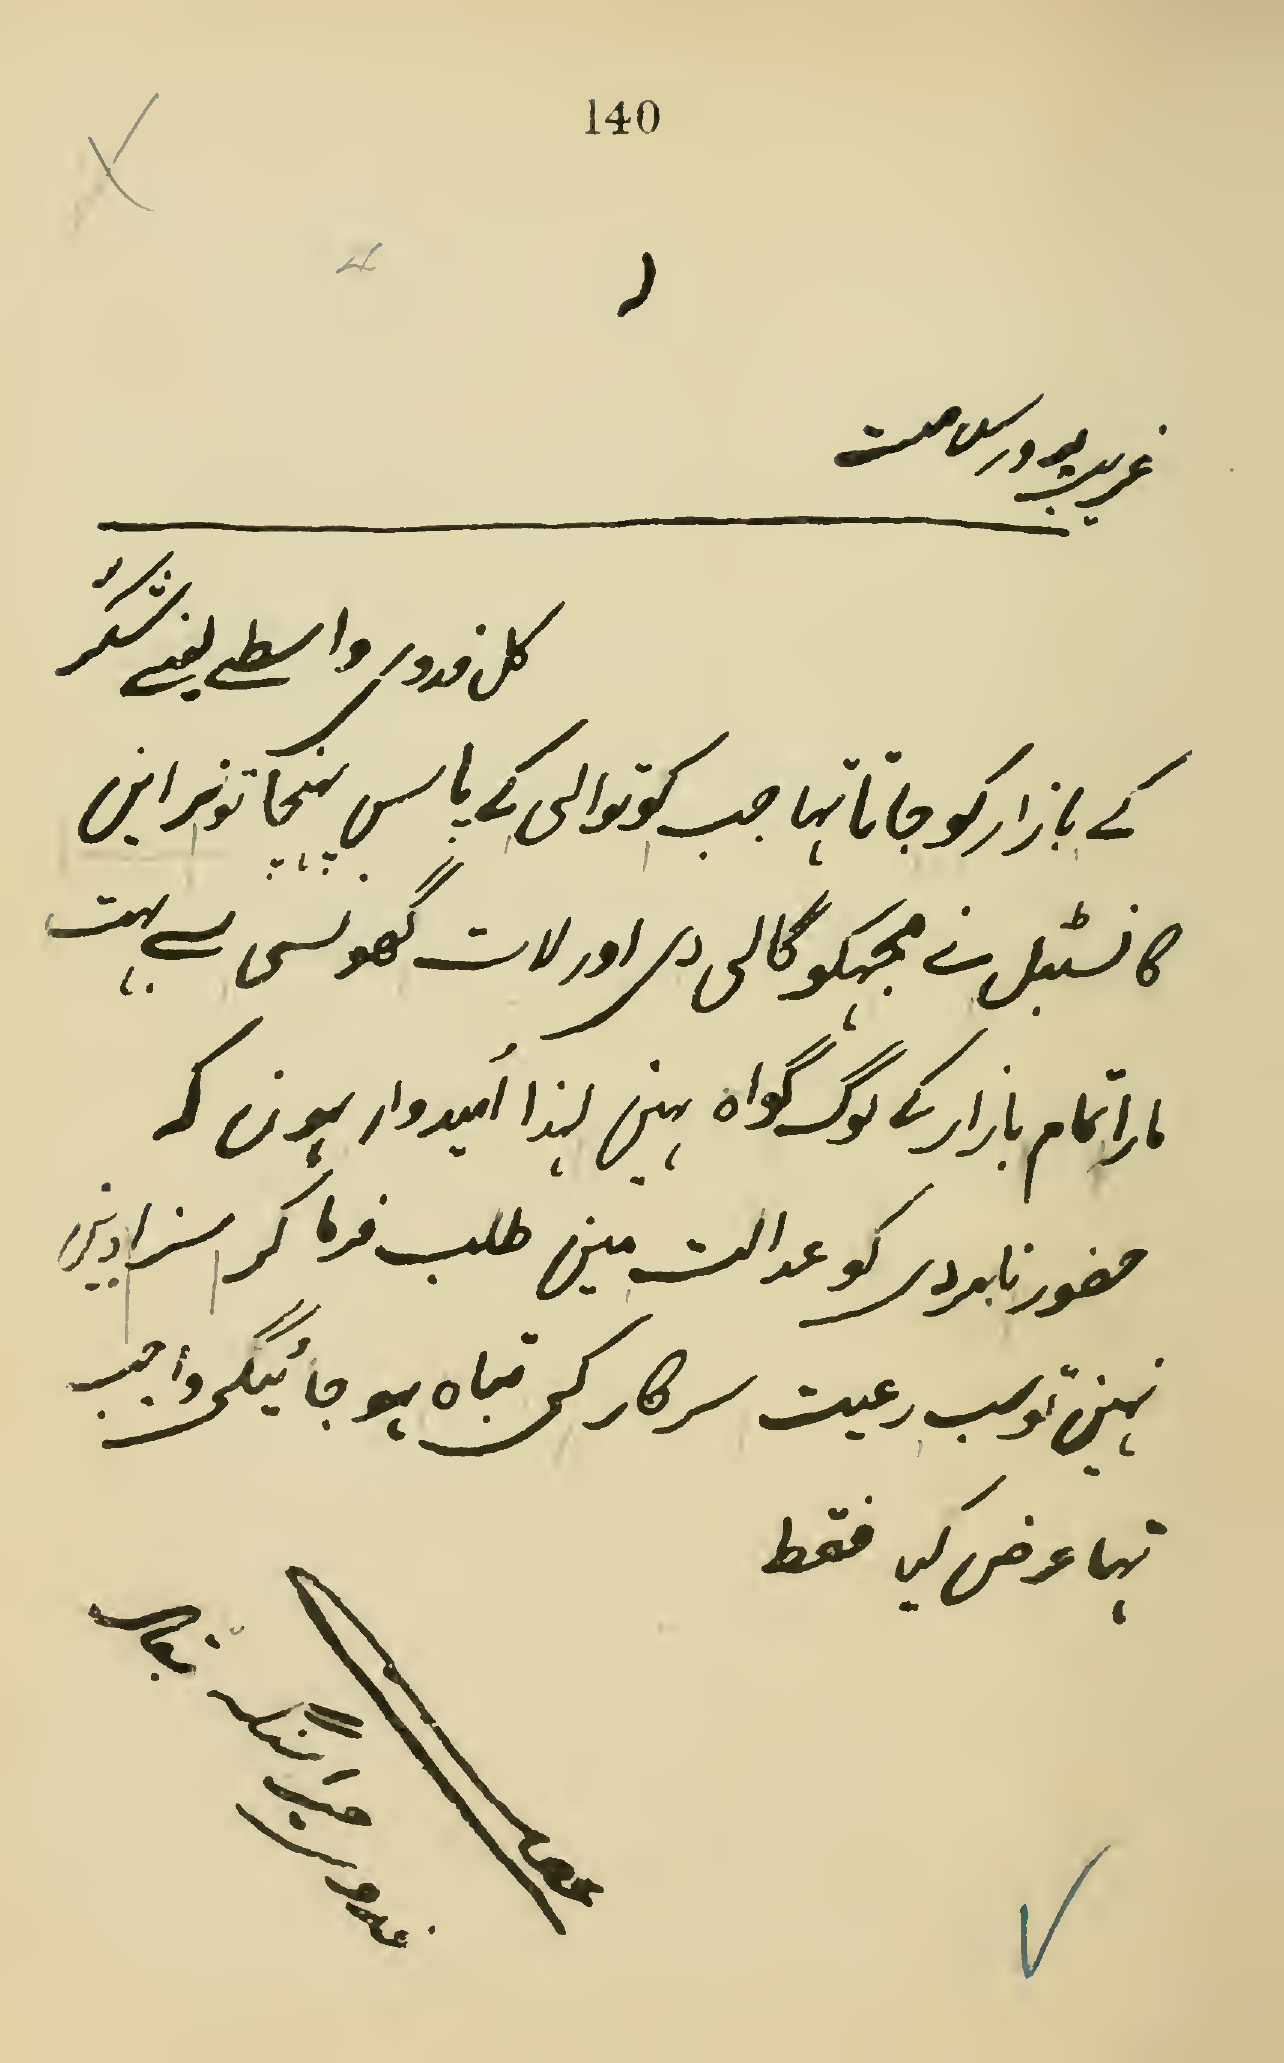 140
۱
غریب پرور سلامت
کل فدوی واسطے لینے شکر
کے بازار کو جاتا تہا جب کوتوالی کے پاس پہنچا تو نراین
کانسٹبل نے مجہکو گالی دی اور لات گھونسی سے بہت
مارا تمام بازار کے لوگ گواہ ہین لہذا اُمیدوار ہون کہ
حضور نامبردی کو عدالت مین طلب فرما کر سزا دین
نہین تو سب رعیت سرکار کی تباہ ہو جائیگی واجب
تہا عرض کیا فقط
عرضے
فدوی